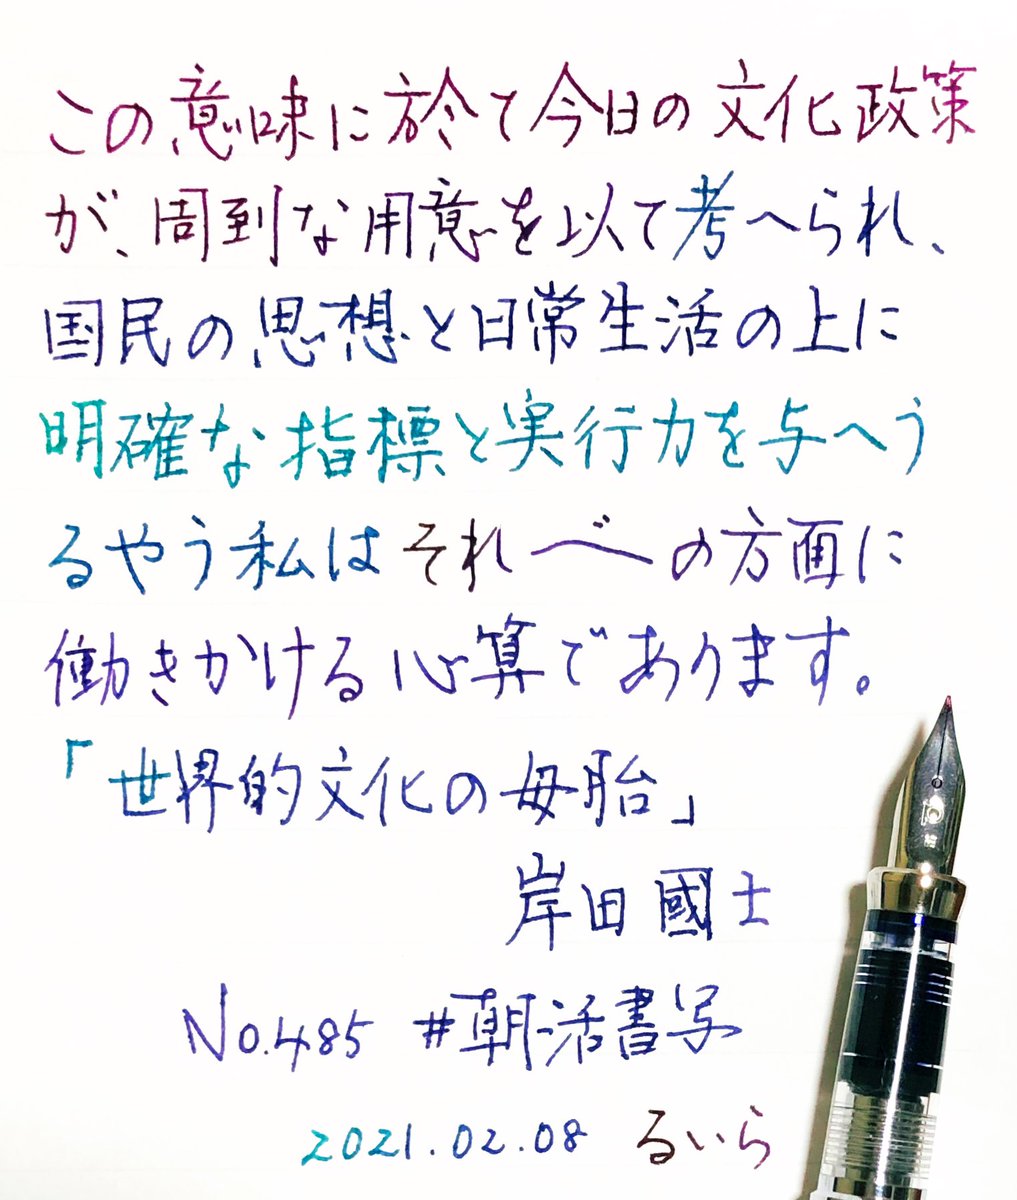 この意味に於て今日の文化政策
が、周到な用意を以て考へられ、
国民の思想と日常生活の上に
明確な指標と実行力を与へう
るやう私はそれ〴〵の方面に
働きかける心算であります。
「世界的文化の母胎」
岸田國士
No.485 #朝活書写
2021.02.08 るいら